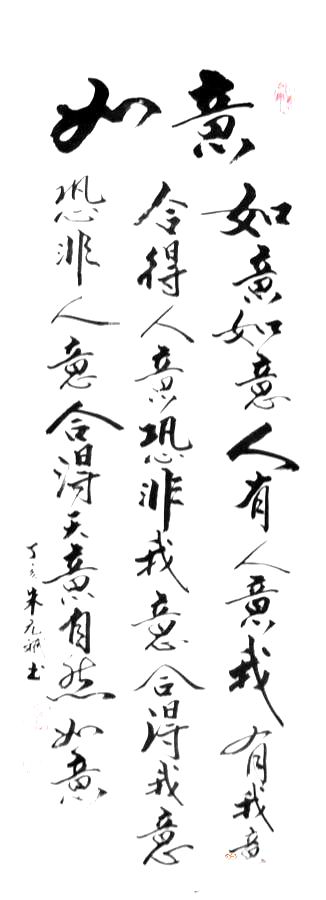 如意
如意如意人有人意我有我意
合得人意恐非我意合得我意
恐非人意合得天意自然如意
丁亥朱元书